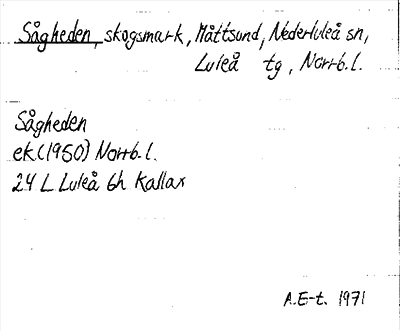 Sågheden, skogsmark, Måttsund, Nederluleå sn,
Luleå tg, Norrb.l.
Sågheden
ek.(1950) Norrb.l.
24 L Luleå 6h Kallax
A.E-t. 1971